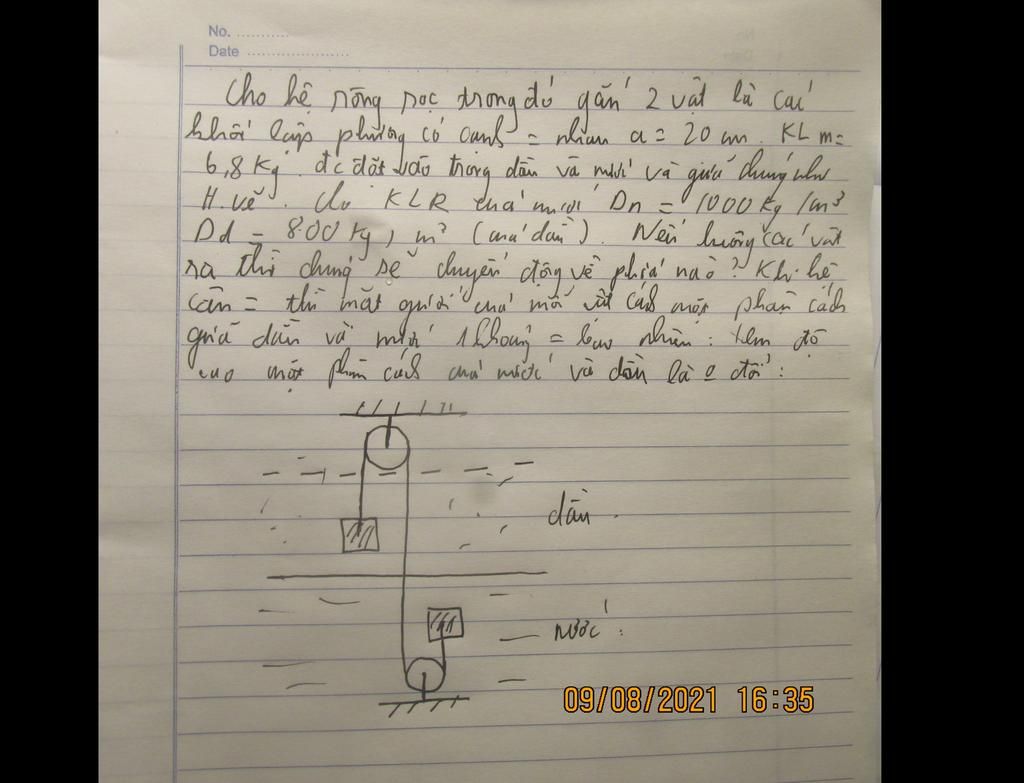 No. ...........
Date .....................
Cho hệ ròng rọc trong đó gắn 2 vật là các
khối lập phương có cạnh = nhau a = 20 cm. KL m =
6,8 Kg. đc đặt vào trong dầu và nước và giữa chúng như
H. vẽ. Cho KLR của nước Dn = 1000 Kg/m³
Dd = 800 Kg, m³ (của dầu). Nếu buông các vật
ra thì chúng sẽ chuyển động về phía nào? Khi hệ
cân = thì mặt dưới của mỗi vật cách mặt phân cách
giữa dầu và nước 1 khoảng = bao nhiêu: Xem độ
cao mặt phân cách của nước và dầu là o đổi:
dầu.
nước:
09/08/2021 16:35